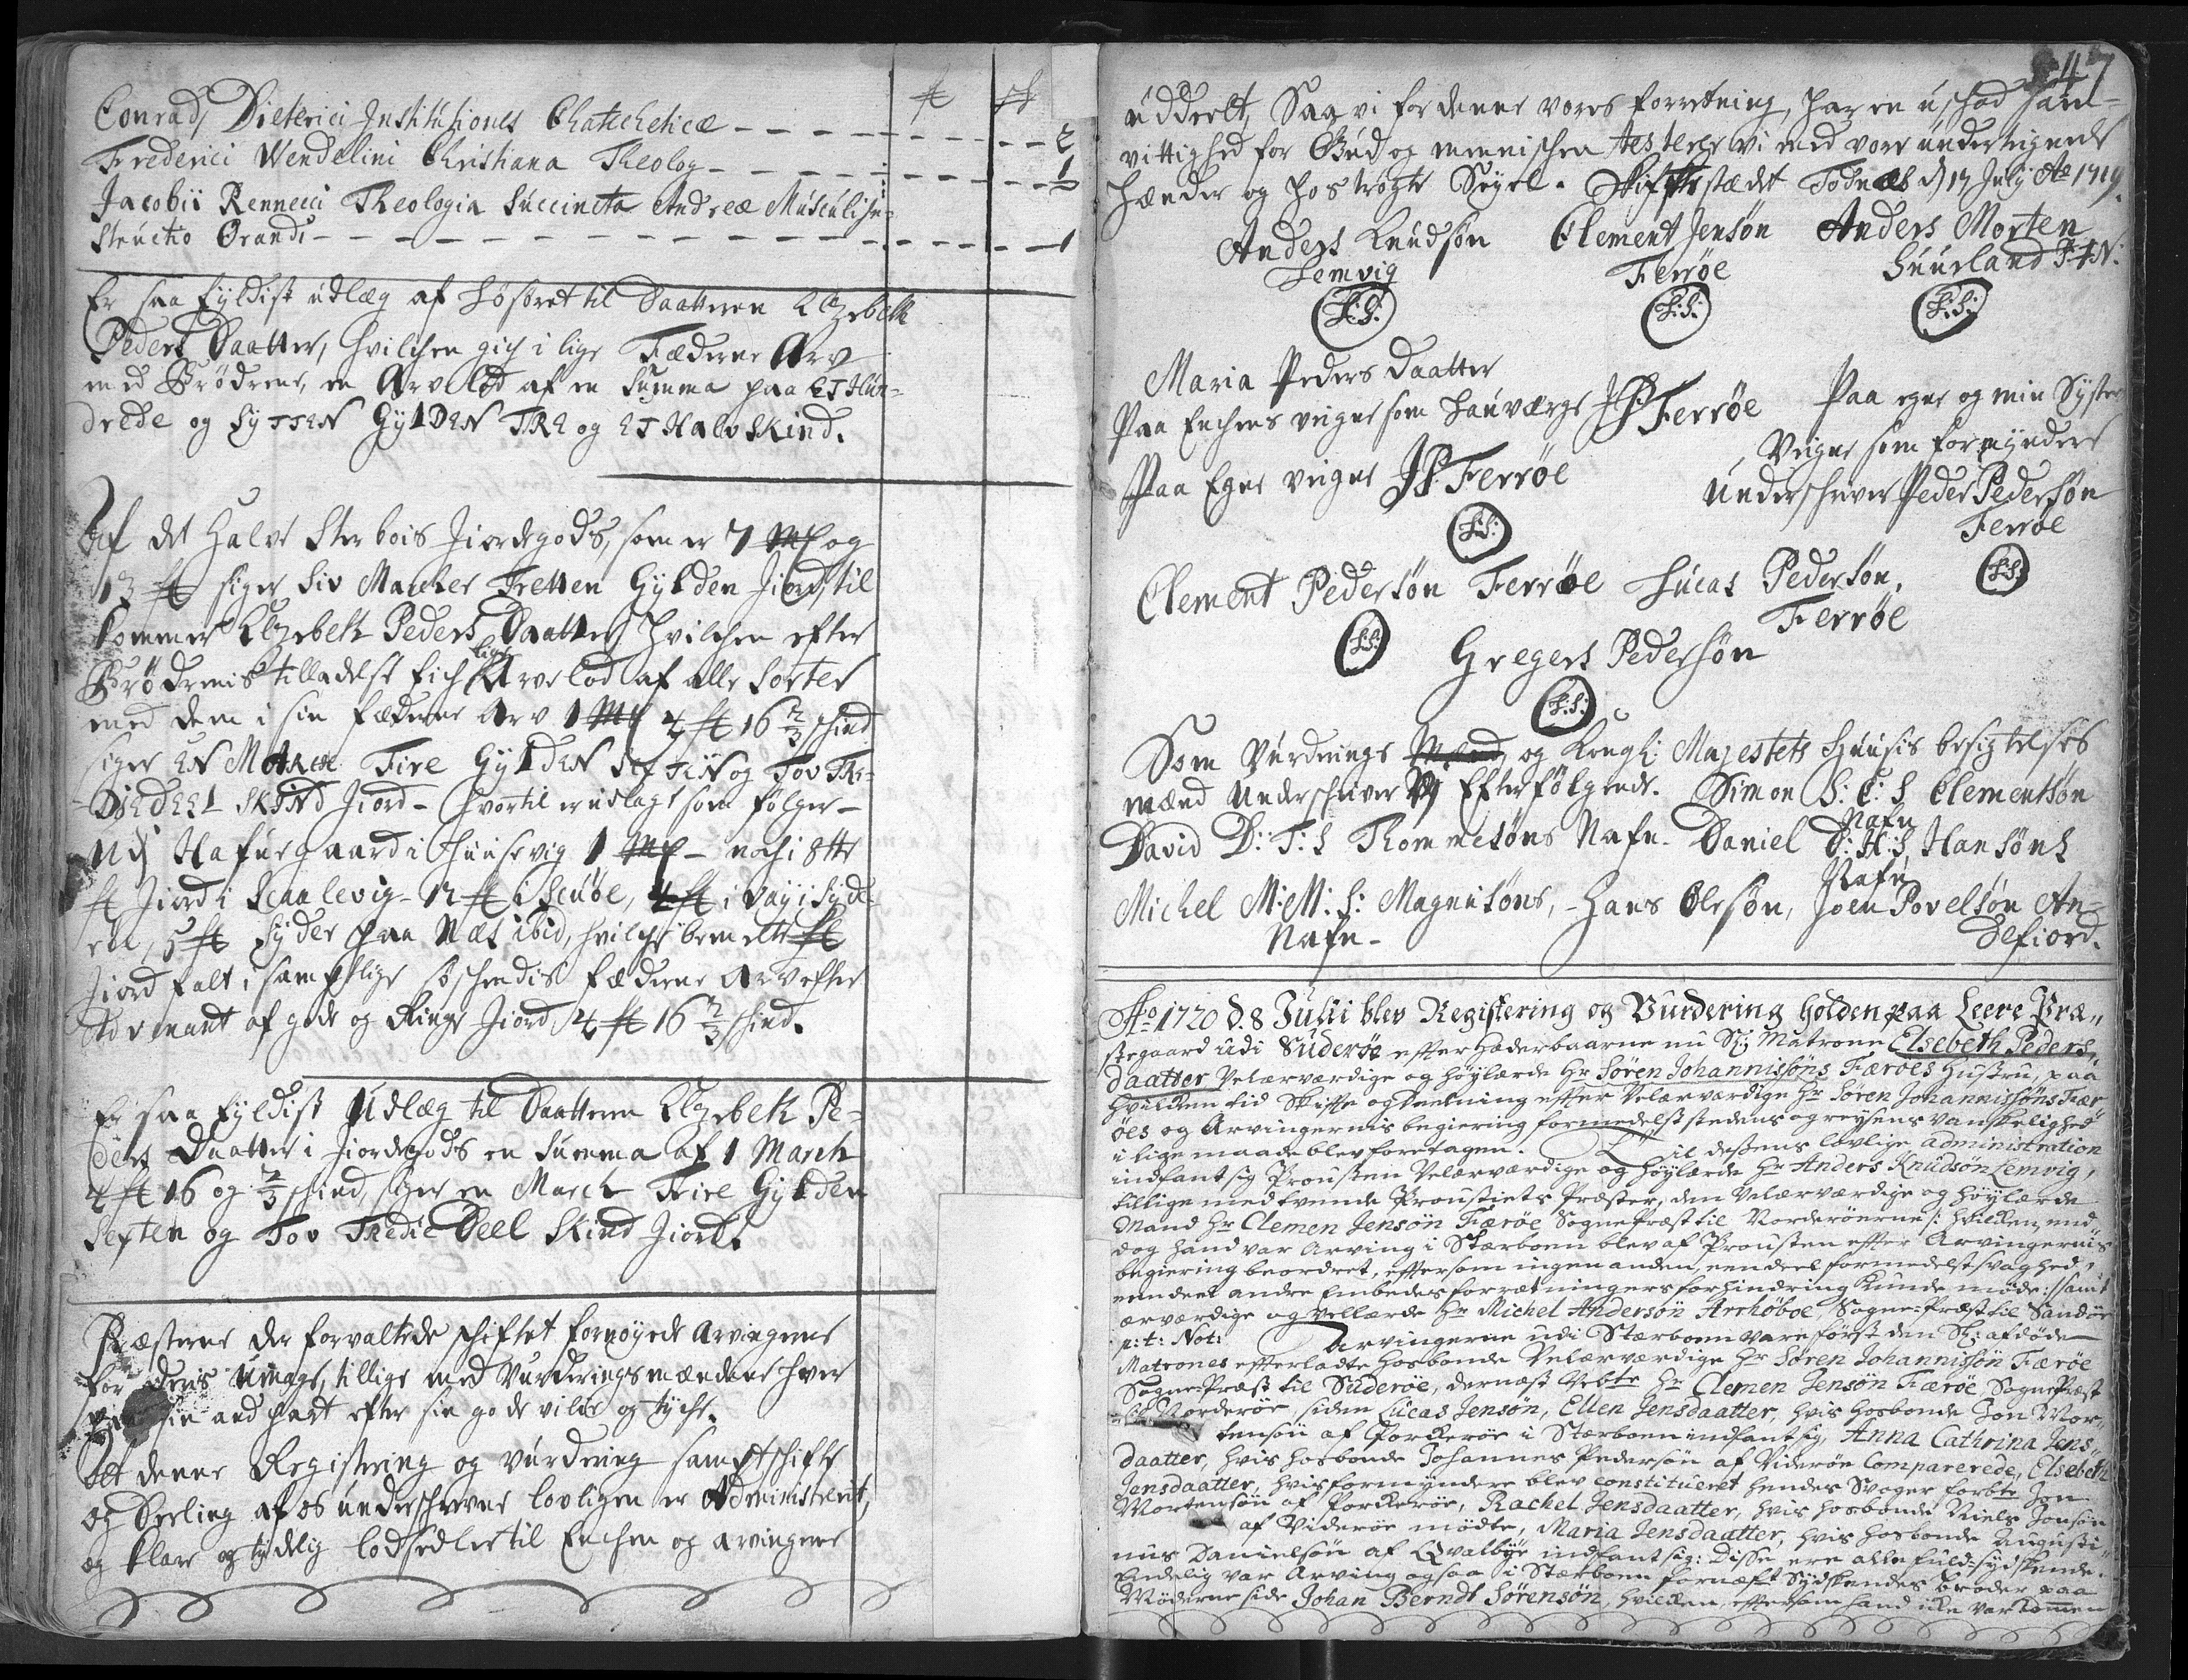 Conradi Dieterici Institutiones Chatecheticæ - - - 2
Frederici Wendelini Christiana Theolog - - - 1
Jacobii Rennecci Theologia Succincta Andreæ Musculi In=
structio Orandi - - - 1
Er saa fyldist udlæg af Løsøret til Daatteren Elzebeth
Peders Daatter, hvilchen gich i lige Fæderne Arv
med Brødrene, en Arvelod af en Summa paa ET Hun=
drede og SyTTEN GylDEN TRE og ET Halv SKind.
Af det halve Sterbois Jiordegods, som er 7 Mk og
13 fl siger Siv Marcker Tretten Gylden Jiord, til
kommer Elzebeth Peders Daatter, hvilchen efter
Brødrenis tilladelse fich lige Arvelod af alle Sorter
med dem i sin fæderne Arv 1 Mk 4 fl 16 2/3 schind
siger EN MARCK Fire GylDEN SexTEN og Tov TRE=
DIEDEEL SKIND Jiord - hvortil er udlagt som følger -
Udi Hafnegaard i Huusevig 1 Mk - noch i 8tte
fl Jiord i Scaalevig - 12 fl i Scuøe, 4 fl i Vaji Syde=
røe, 5 fl Syder paa Næs ibid, hvilche bemelte fl
Jiord falt i samptlige Søschendis fæderne Arv efter
advenant af gode og Ringe Jiord 4 fl 16 2/3 schind.
Er saa fyldist Udlæg til Daatteren Elzebeth Pe=
ders Daatter i Jiordegods en Summa af 1 March
4 fl 16 og 2/3 schind, siger en March Fire Gylden
Sexten og Tov Tredie Deel Skind Jiord.
Præsterne der forvaltede schiftet fornøyede Arvingerne
for deris Umage, tillige med Vurderingsmændene hver
sin and part efter sin gode villie og tyche.
At denne Registering og Vurdering sampt schifte
og Deeling af os underschrevne lovligen er Administrerit,
og klare og tydelig lodsedler til Enchen og Arvingerne
47
uddeelt, Saa vi for denne vores forretning, har en uschad Sam=
vittighed for Gud og mennischen testerer vi med vore undertegnede
hænder og hostrøgte Seyel. Skiftestædet Todnæs d 17 July Ao 1719.
Anders Knudsøn Clement Jensøn Anders Morten
Lemvig Ferrøe Suurland P.t.N:
L.S: L.S: L.S:
Maria Peders Daatter
Paa Enchens veigne som Lauværge JP Ferrøe Paa egne og min Syster
Veigne som formynder
Paa Egne veigne JP Ferrøe Underschriver Peder Pedersøn
Ferrøe
L.S:
Clement Pedersøn Ferrøe Lucas Pedersøn, L.S:
Ferrøe
L.S: Gregers Pedersøn
L.S:
Som Vurderings Mænd og Kongl: Majestets Huusis besigtelses
mænd Underschriver Vj Efterfølgende. Simon S: C: S Clementsøn
Nafn
David D: T: S Thommesøns Nafn. Daniel D: H: S Hansøns
Nafn
Michel M: M: S: Magnusøns, - Hans Olesøn, Joen Povelsøn An=
Nafn - defiord.
Ao 1720 d. 8 Julii blev Registering og Vurdering holden paa Leere Præ„
stegaard udi Suderøe efter Hæderbaarne nu Sl: Matrone Elsebeth Peders„
daatter Velærværdige og høylærde Hr Søren Johannissøns Færoes Hustru, paa
hvilken tid Skifte og Deelning efter Velærværdige Hr Søren Johannissøns Fær
öes og Arvingernis begiering formedelst stedens og reysens vanskelighed
i lige maade blev foretagen. Til deßens lovlige administration
indfant sig Prousten Velærværdige og høylærde Hr Anders Knudsøn Lemvig,
tillige med tvende Proustiets Præster, den Velærværdige og høylærde
Mand Hr Clemen Jensøn Færöe Sogne Præst til Norderøerne /: hvilken, end„
dog hand var Arving i Stærboen blev af Prousten efter Arvingernis
begiering beordret, eftersom ingen anden, eendeel formedelst svaghed,
eendeel andre Embedes forrætningers forhindring kunde møde :/ samt
ærværdige og vellærde Hr Michel Andersøn Arrhöboe, Sogne=Præst til Sandøe
p: t: Not: Arvingerne udi Stærboen vare först den Sl: afdøde
Matrones efterladte Hosbonde Velærværdige Hr Søren Johannissøn Færöe
Sogne=Præst til Suderøe, dernæst Velbte Hr Clemen Jensøn Færöe Sogne Præst
til Norderöe, siden Lucas Jensøn, Ellen Jensdaatter, hvis Hosbonde Jon Mor„
tensøn af Porckerøe i Stærboen indfant sig, Anna Cathrina Jens„
daatter, hvis Hosbonde Johannes Pedersøn af Viderøe Comparerede, Elsebeth
Jensdaatter, hvis formyndere blev constitueret hendes Svoger forbte Jon
Mortensøn af Porckerøe, Rachel Jensdaatter, hvis Hosbonde Niels Jonsøn
af Viderøe mödte, Maria Jensdaatter, hvis Hosbonde Augusti„
nus Danielsøn af Qvalböe indfant sig: Disse ere alle fuld=sydskende.
Endelig var Arving ogsaa i Stærboen fornæfnt Sydskendes broder paa
Möderne side Johan Berndt Sörensön, hvilken, eftersom hand icke var kommen